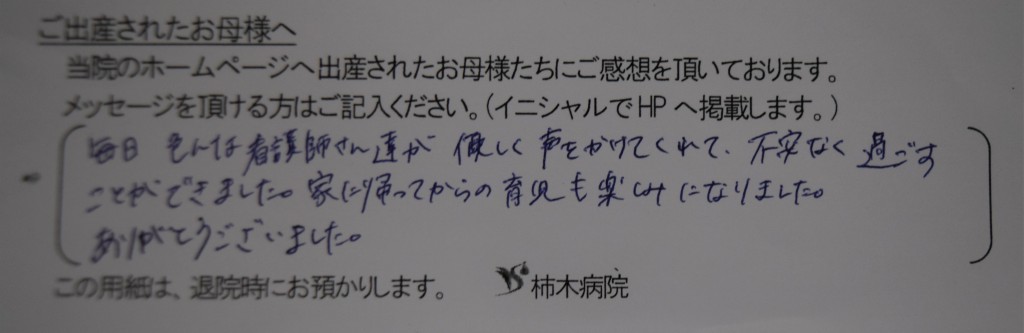 ご出産されたお母様へ
当院のホームページへ出産されたお母様たちにご感想を頂いております。
メッセージを頂ける方はご記入ください。（イニシャルでHPへ掲載します。）
毎日 色んな看護師さん達が 優しく 声をかけてくれて、不安なく 過ごす
ことができました。家に帰ってからの育児も楽しみになりました。
ありがとうございました。
この用紙は、退院時にお預かりします。 柿木病院